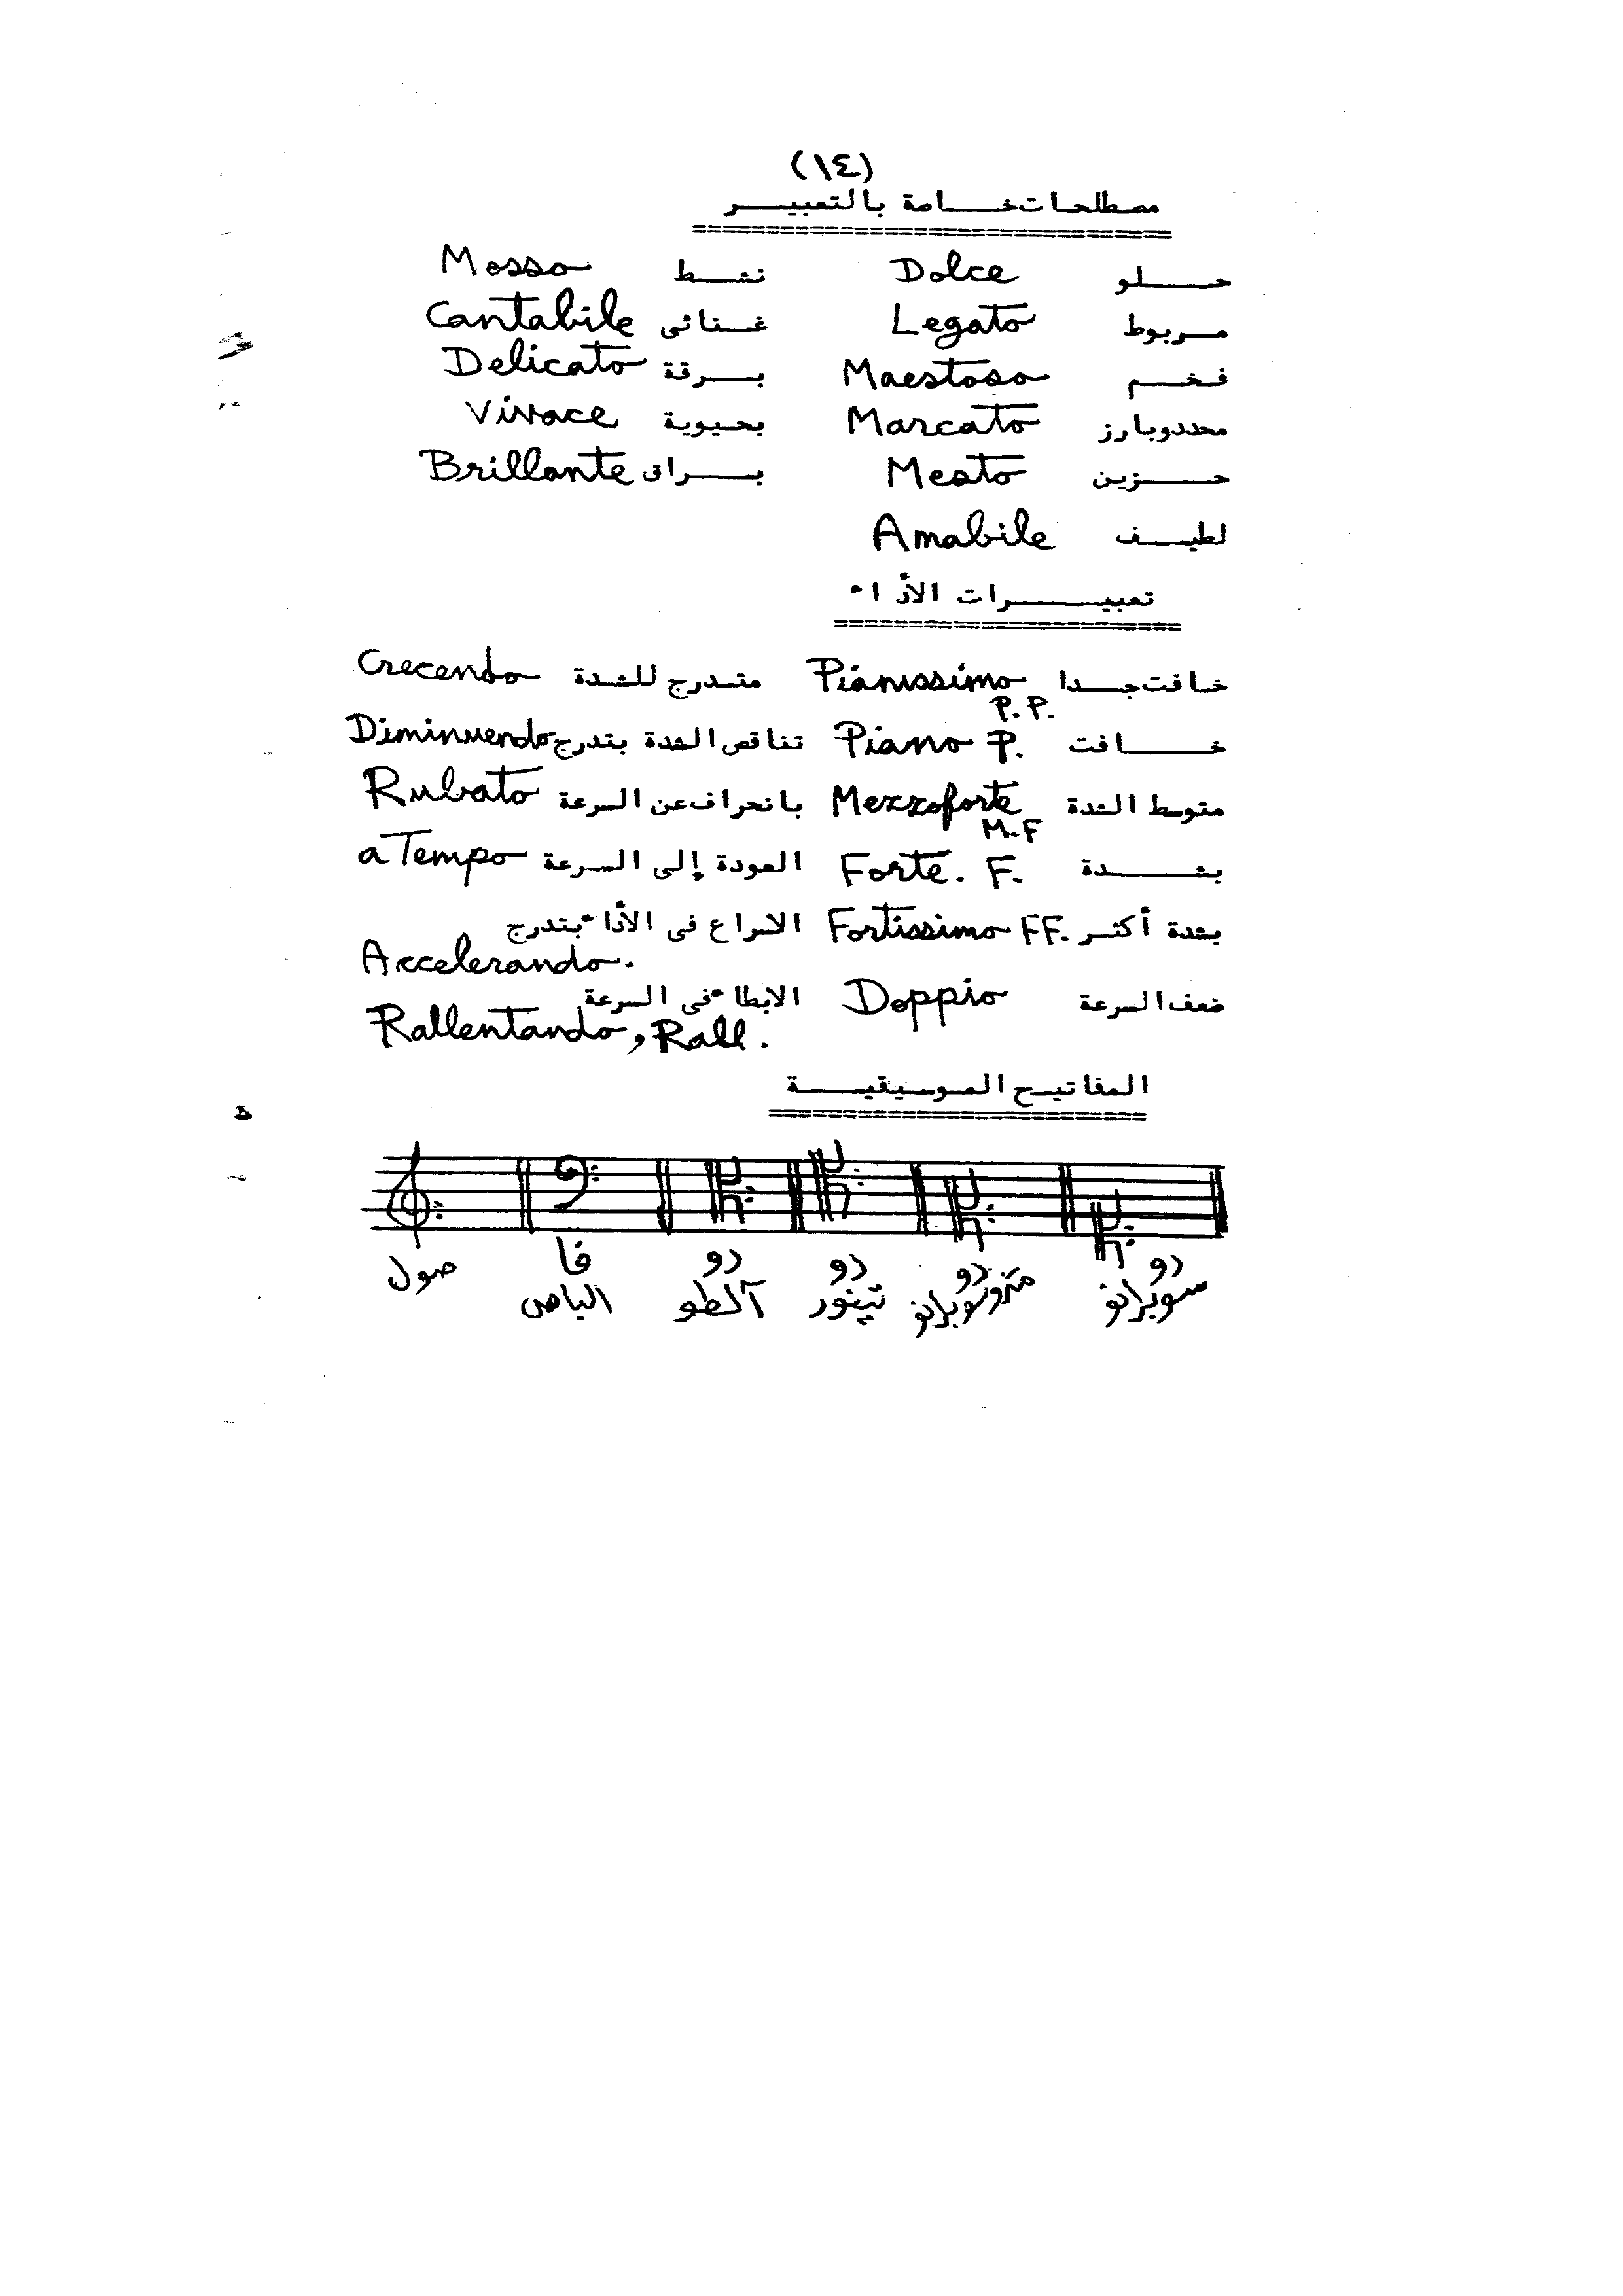 (١٤)
مصطلحات خاصة بالتعبير
حلو Dolce نشط Mosso
مربوط Legato غنائى Cantabile
فخم Maestoso برقة Delicato
محدد وبارز Marcato بحيوية Vivace
حزين Mesto براق Brillante
لطيف Amabile
تعبيرات الأداء
خافت جدا Pianissimo متدرج للشدة Crecendo
P.P.
خافت Piano P. تناقص الشدة بتدرج Diminuendo
متوسط الشدة Mezzoforte بانحراف عن السرعة Rubato
M.F
بشدة Forte. F. العودة إلى السرعة a Tempo
بشدة أكثر Fortissimo FF. الاسراع فى الأداء بتدرج
Accelerando.
ضعف السرعة Doppio الابطاء فى السرعة
Rallentando, Rall.
المفاتيح الموسيقية
صول فا دو دو دو دو
الباص آلطو تينور متزوسوبرانو سوبرانو